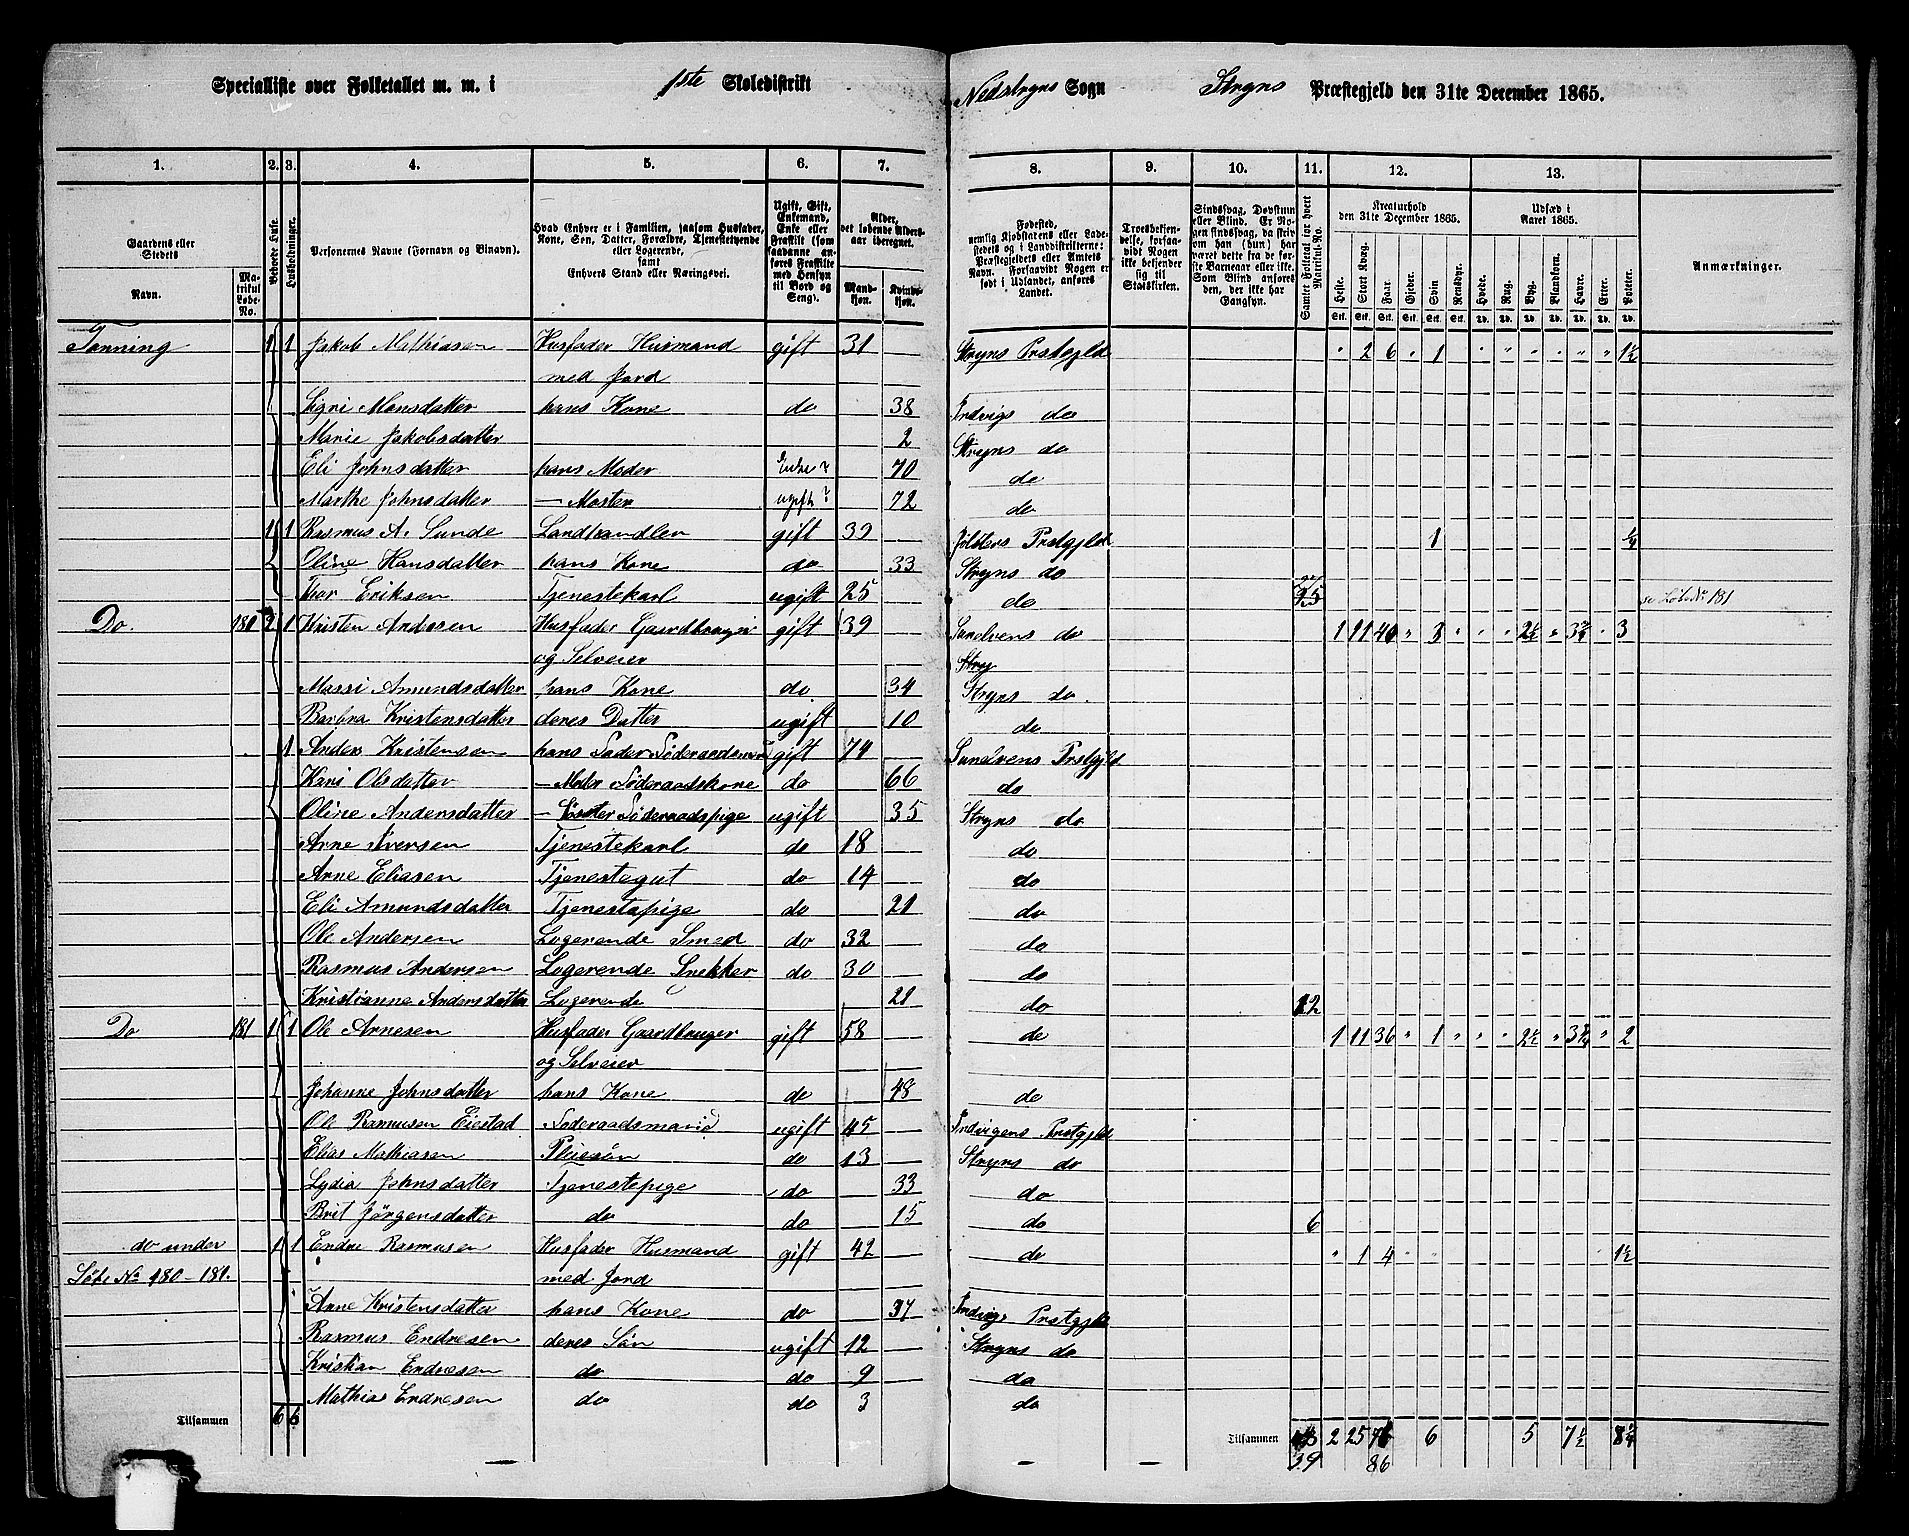 Specialliste over Folketallet m. m. i 1ste Skoledistrikt Nedstryns Sogn Stryns Præstegjeld den 31te December 1865.
1. 2. 3. 4. 5. 6. 7. 8. 9. 10. 11. 12. 13.
Gaardens eller Stedets Navn.
Matrikul Løbe-No.
Beboede Huse.
Husholdninger.
Personernes Navne (Fornavn og Binavn).
Hvad Enhver er i Familien, saasom Husfader, Kone, Søn, Datter, Forældre, Tjenestetyende eller Logerende, samt Enhvers Stand eller Næringsvei.
Ugift, Gift, Enkemand, Enke eller Fraskilt (som saadanne anføres Fraskilte med Hensyn til Bord og Seng).
Alder, det løbende Alders-aar iberegnet.
Mand-kjøn. Kvinde-kjøn.
Fødested, nemlig Kjøbstadens eller Ladestedets og i Landdistrikterne: Præstegjeldets eller Amtets Navn. Forsaavidt Nogen er født i Udlandet, anføres Landet.
Troesbekjendelse, forsaavidt Nogen ikke bekjender sig til Statskirken.
Sindssvag, Døvstum eller Blind. Er Nogen sindssvag, da skriv om han (hun) har været dette fra de første Barneaar eller ikke. Som Blind anføres den, der ikke har Gangsyn.
Samlet Folketal for hvert Matrikul-No.
Kreaturhold den 31te December 1865.
Heste. Stort Kvæg. Faar. Gjeder. Svin. Rensdyr.
Udsæd i Aaret 1865.
Hvede. Rug. Byg. Blandkorn. Havre. Erter. Poteter.
Anmærkninger.
Tonning 1 1 Jakob Mathiasen Husfader Husmand gift 31 Stryns Prstgjld " 2 6 " 1 " " " " " " 1½
med Jord
Signi Monsdatter hans Kone do 38 Indvigs do
Marie Jakobsdatter 2 Stryns do
Eli Johnsdatter hans Moder Enke ? 70 do
Marthe Johnsdatter — Moster ugift ? 72 do
1 1 Rasmus A. Sunde Landhandler gift 39 Jølsters Prstgjld 1 ¼
Oline Hansdatter hans Kone do 33 Stryns do
Thor Eriksen Tjenestekarl ugift 25 do se Løbe No 181
Do. 180 2 1 Kristen Andersen Husfader Gaardbruger gift 39 Sunelvens do 1 11 40 " 3 " " " 2½ " 3¾ " 3
og Selveier Stry
Massi Amundsdatter hans Kone do 34 Stryns do.
Barbra Kristensdatter deres Datter ugift 10 do
1 Anders Kristensen hans Fader Føderaadsmand gift 74 Sunelvens Prstgjld
Kari Olsdatter — Moder Føderaadskone do 66 do
Oline Andersdatter — Søster Føderaadspige ugift 35 Stryns do
Arne Iversen Tjenestekarl do 18 do
Arne Eliasen Tjenestegut do 14 do
Eli Amundsdatter Tjenestepige do 21 do
Ole Andersen Logerende Smed do 32 do
Rasmus Andersen Logerende Snekker do 30 do
Kristianne Andersdatter Logerende 21 do 12
Do 181 1 1 Ole Arnesen Husfader Gaardbruger gift 58 do 1 11 36 " 1 " " " 2½ " 3¾ " 2
og Selveier
Johanne Johnsdatter hans Kone do 48 do
Ole Rasmusen Eiestad Føderaadsmand ugift 45 Indvigens Prstgjld
Elias Mathiasen Pleiesøn do 13 Stryns do
Lydia Johnsdatter Tjenestepige do 33 do
Brit Jörgensdatter do do 15 do 6
do under 1 1 Endre Rasmusen Husfader Husmand gift 42 do " 1 4 " " " 1½
Löbe No 180-181. med Jord
Anne Kristensdatter hans Kone do 37 Indvigs Prstgjld
Rasmus Endresen deres Søn ugift 12 Stryns do
Kristian Endresen do do 9 do
Mathias Endresen do do 3 do
Tilsammen 6 6 Tilsammen 2 25 6 5 7½ 8¼
39 86